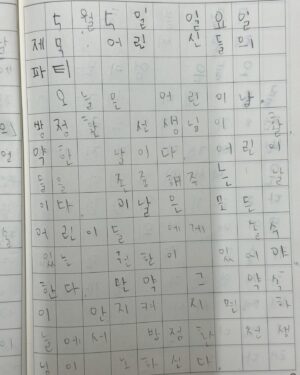 5월 5일 일요일
제목: 어린 신들의
파티
오늘은 어린이날.
방정환 선생님이
약한 날이다. 어린이
들을 존중해 주는 날
이다. 이날은 모든
어린이들에게 놀 수
있는 권한이 있어야
한다. 만약 그 약속
이 안 지켜지면 하
늘에서 방정환 선생
님이 노하신다.